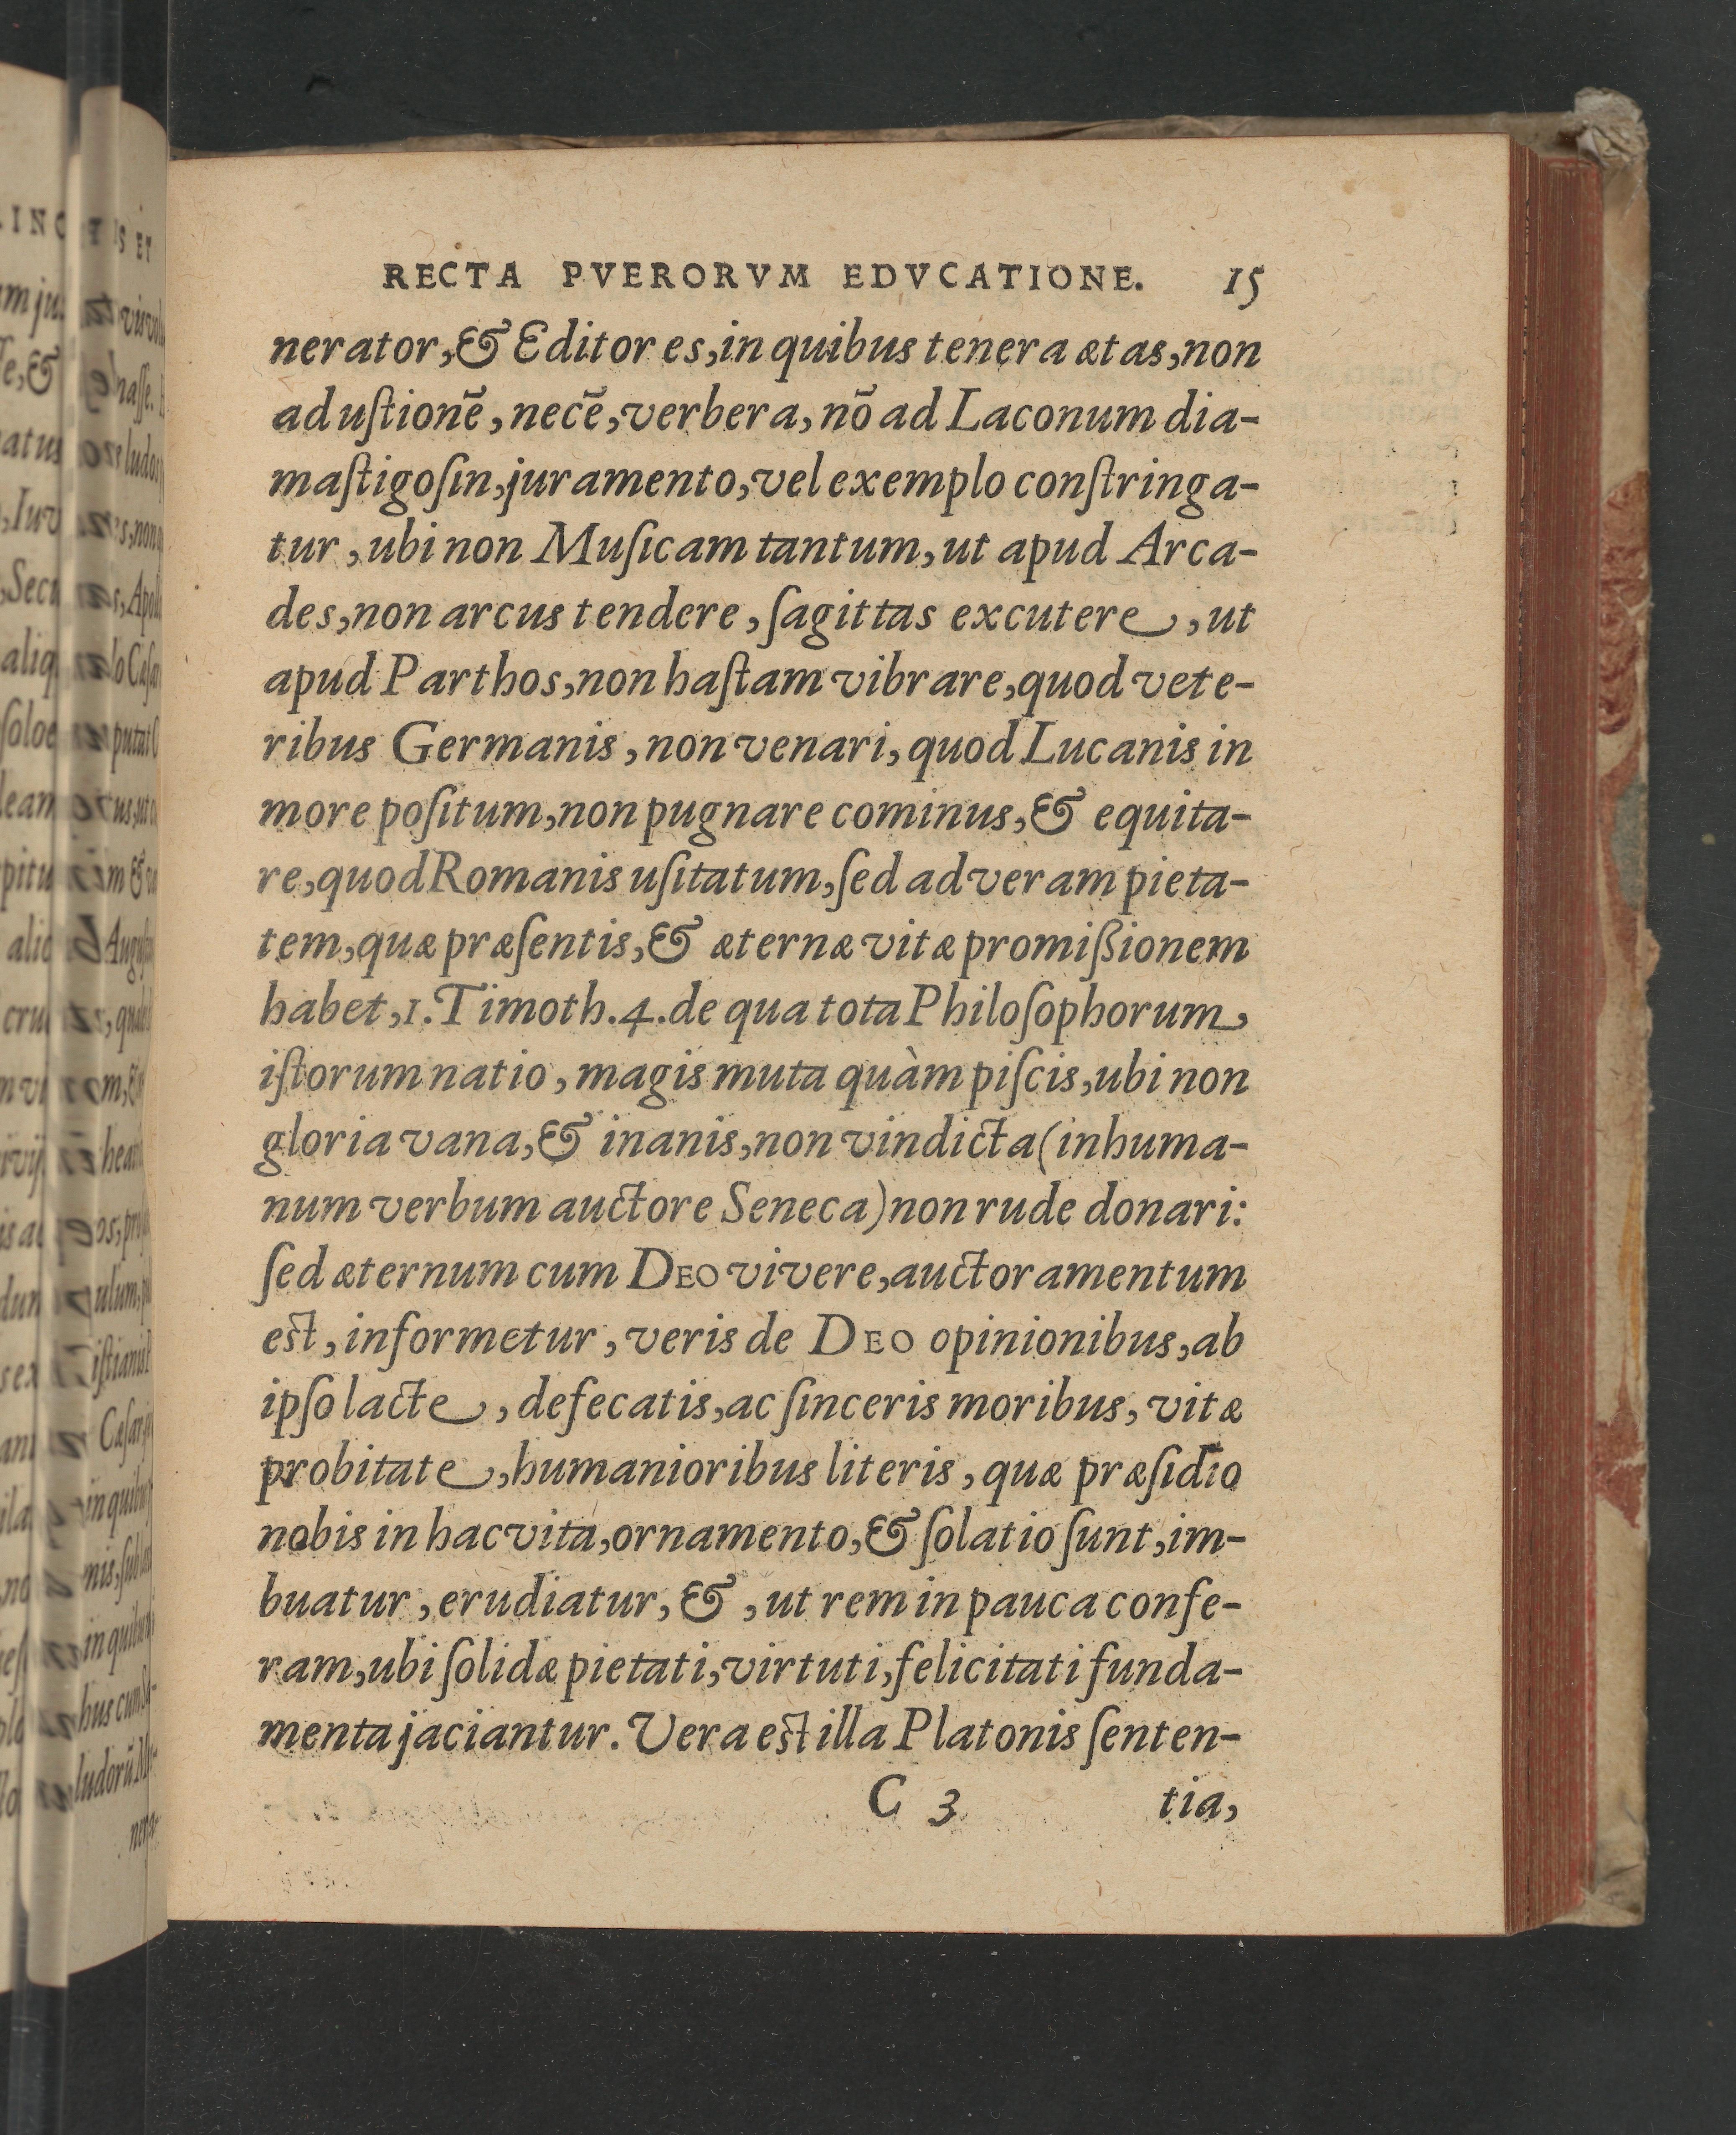 RECTA PVERORVM EDVCATIONE. 15
nerator, & Editores, in quibus tenera ætas, non
ad uſtionẽ, necẽ, verbera, nõ ad Laconum dia-
maſtigoſin, juramento, vel exemplo conſtringa-
tur, ubi non Muſicam tantum, ut apud Arca-
des, non arcus tendere, ſagittas excutere, ut
apud Parthos, non haſtam vibrare, quod vete-
ribus Germanis, non venari, quod Lucanis in
more poſitum, non pugnare cominus, & equita-
re, quod Romanis uſitatum, ſed ad veram pieta-
tem, quæ præſentis, & æternæ vitæ promißionem
habet, 1. Timoth. 4. de qua tota Philoſophorum,
iſtorum natio, magis muta quàm piſcis, ubi non
gloria vana, & inanis, non vindicta (inhuma-
num verbum auctore Seneca) non rude donari:
ſed æternum cum DEO vivere, auctoramentum
est, informetur, veris de DEO opinionibus, ab
ipſo lacte, defecatis, ac ſinceris moribus, vitæ
probitate, humanioribus literis, quæ præſidio
nobis in hac vita, ornamento, & ſolatio ſunt, im-
buatur, erudiatur, &, ut rem in pauca confe-
ram, ubi ſolidæ pietati, virtuti, felicitati funda-
menta jaciantur. Vera est illa Platonis ſenten-
C 3 tia,